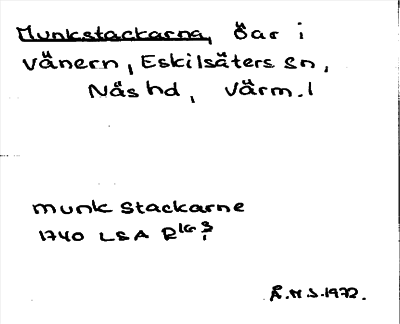 Munkstackarna, öar i
Vänern, Eskilsäters sn,
Näs hd, Värm. l
munk Stackarne
1740 LSA R
Å.M.S. 1972.